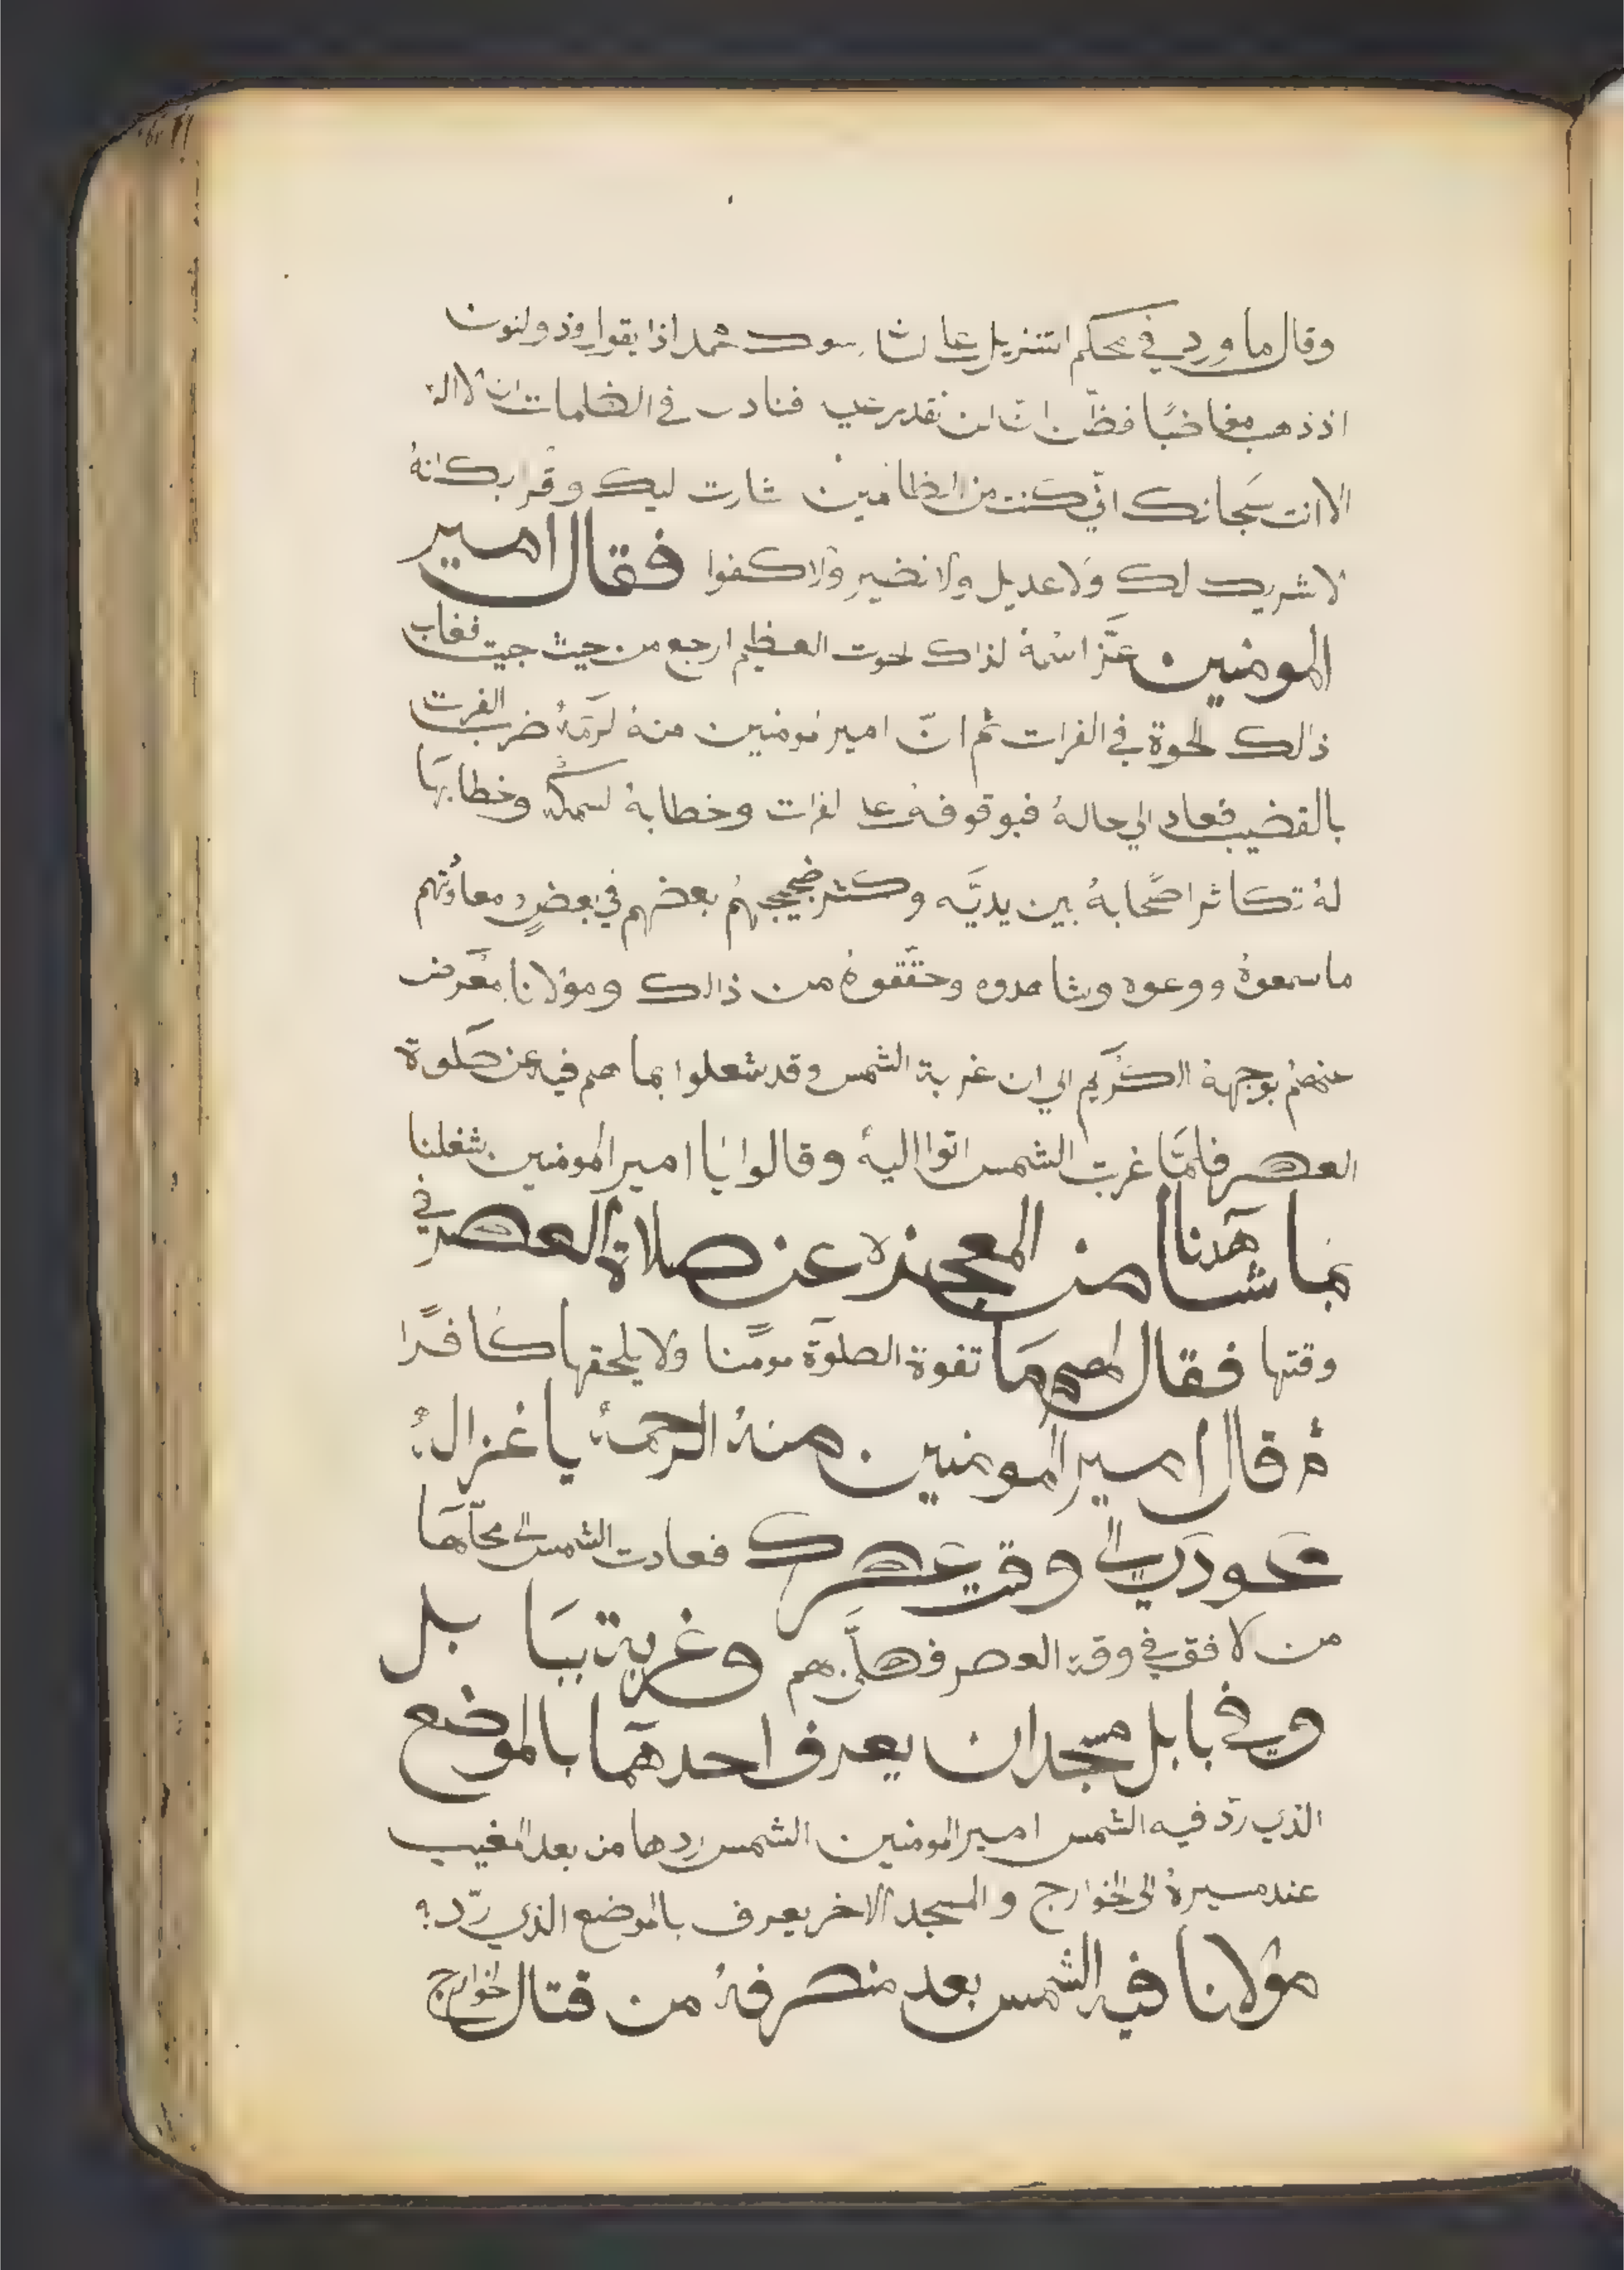 وقال ما ورد في محكم التنزيل على لسا سود محمد اذا يقول وذو لنون
اذ ذهب مغاضبًا فظّن انّ لن نقدر عليه فنادى في الظلمات ان لا اله
الا انت سبحانك انّي كنت من الظالمين شارت ليك وقر اربك انهُ
لا شريك لك ولا عديل ولا نضير ولا كفوا فقال امير
المومنين عزّ اسمهُ لذاك لحوت العظيم ارجع من حيث جيت فغاب
ذالك الحوة في الفرات ثم انّ امير مومنين منهُ لرحمَهُ ضرب الفرت
بالقضيب فعاد الي حالهُ فبوقوفهُ على لفرات وخطابهُ لسمكه وخطابها
لهُ تكاثر اصحابهُ بين يديَّه وكثر ضجيجهُم بعضهم في بعضٍ ومعاونهم
ما سمعوهُ ووعوه وشاهدوه وحققوهُ من ذالك ومولانا معَرض
عنهم بوجههُ الكريم الي ان غربة الشمس وقد شعلوا بما هم فيه عن صَلوة
العصر فلمَّا غربت الشمس اتوا اليهُ وقالوا يا امير المومنين شغلنا
بما شاهدنا من المعجزه عن صلاة العصر في
وقتها فقال لهم وما تفوة الصلوة مومنًا ولا يلحقها كافرًا
ثم قال امير المومنين منهُ الرحمهُ يا غزالهُ
عودي الى وقت عصرك فعادت الشمس الى محلّها
من لافق في وقة العصر فصلَّى بهم وغربة ببا بل
وفي بابل مسجدان يعرف احدهما بالموضع
الذي ردّ فيه الشمس امير المومنين الشمس ردها من بعد المغيب
عند مسيرهُ الى الخوارج والمسجد الاخر يعرف بالموضع الذي ردّ
مولانا فيه الشمس بعد منصرفهُ من قتال الخوارج